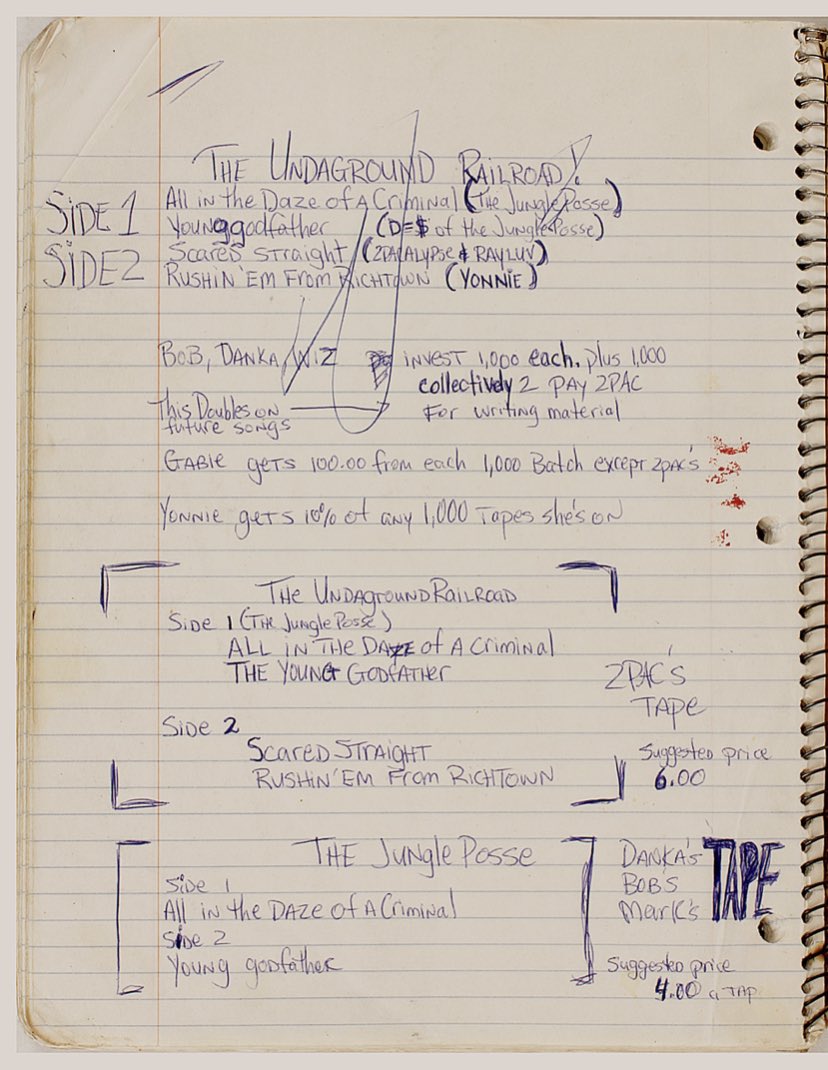 THE UNDAGROUND RAILROAD!
SIDE 1 All in the Daze of A Criminal (The Jungle Posse)
Young godfather (D=$ of the Jungle Posse)
SIDE 2 Scared Straight (2PACALYPSE & RAYLUV)
RUSHIN 'EM FROM RICHTOWN (YONNIE)
BOB, DANKA, WIZ INVEST 1,000 each. plus 1,000
collectively 2 PAY 2PAC
This Doubles on For writing material
future songs
GABIE gets 100.00 from each 1,000 Batch except 2pac's
YONNIE gets 10% of any 1,000 Tapes she's ON
The UNDAgroundRailroad
Side 1 (The Jungle Posse)
ALL iN THE DAZE of A Criminal
THE YOUNG GODFATHER
2PAC'S
TAPE
Side 2
SCARED STRAIGHT
RUSHIN' EM From RICHTOWN
Suggested price
6.00
THE Jungle Posse
Side 1
All in the DAZE of A Criminal
Side 2
Young godfather
DANKA's TAPE
BOBS
Mark's
Suggested price
4.00 a TAP